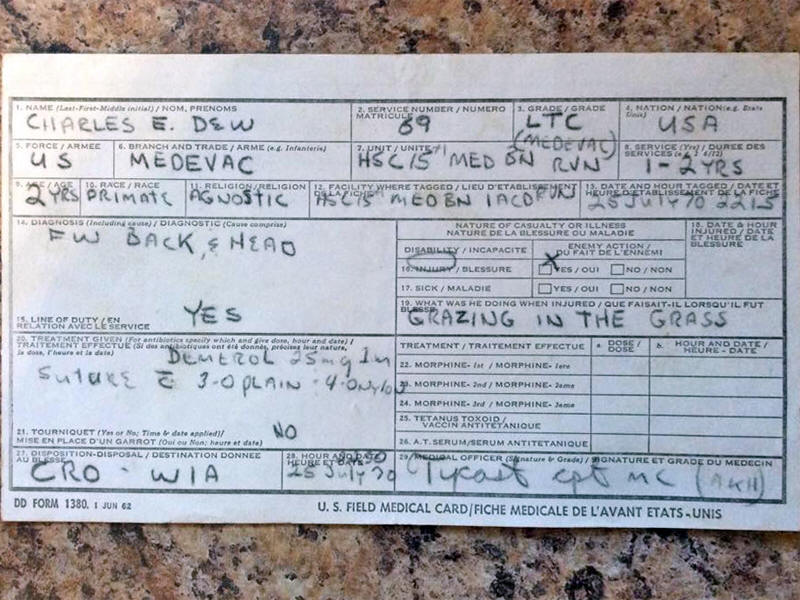 1. NAME (Last-First-Middle initial) / NOM, PRENOMS
CHARLES E. DEW
2. SERVICE NUMBER / NUMERO MATRICULE
69
3. GRADE / GRADE
LTC (MEDEVAC)
4. NATION / NATION (e.g. Etats Unis)
USA
5. FORCE / ARMEE
US
6. BRANCH AND TRADE / ARME (e.g. Infanterie)
MEDEVAC
7. UNIT / UNITE
HSC/15 MED BN RVN
8. SERVICE (YRS) / DUREE DES SERVICES
1-2 YRS
9. AGE / AGE
2 YRS
10. RACE / RACE
PRIMATE
11. RELIGION / RELIGION
AGNOSTIC
12. FACILITY WHERE TAGGED / LIEU D'ETABLISSEMENT
HSC/15 MED BN 1ACD RVN
13. DATE AND HOUR TAGGED / DATE ET HEURE D'ETABLISSEMENT DE LA FICHE
25 JULY 70 2215
14. DIAGNOSIS (Including cause) / DIAGNOSTIC (Cause comprise)
FW BACK, & HEAD
15. LINE OF DUTY / EN RELATION AVEC LE SERVICE
YES
NATURE OF CASUALTY OR ILLNESS
NATURE DE LA BLESSURE OU MALADIE
DISABILITY / INCAPACITE
ENEMY ACTION / DU FAIT DE L'ENNEMI
16. INJURY / BLESSURE
X YES / OUI NO / NON
17. SICK / MALADIE
YES / OUI NO / NON
18. DATE & HOUR INJURED / DATE ET HEURE DE LA BLESSURE
19. WHAT WAS HE DOING WHEN INJURED / QUE FAISAIT-IL LORSQU'IL FUT BLESSE
GRAZING IN THE GRASS
20. TREATMENT GIVEN (For antibiotics specify which and give dose, hour and date) /
TRAITEMENT EFFECTUE (Si des antibiotiques ont été donnés, précisez leur nature, la dose, l'heure et la date)
DEMEROL 25mg Im
SUTURE c̄ 3-0 PLAIN - 4-0 NYLON
21. TOURNIQUET (Yes or No; Time & date applied) /
MISE EN PLACE D'UN GARROT (Oui ou Non; heure et date)
NO
TREATMENT / TRAITEMENT EFFECTUE
a. DOSE / DOSE
b. HOUR AND DATE / HEURE - DATE
22. MORPHINE- 1st / MORPHINE- 1ere
23. MORPHINE- 2nd / MORPHINE- 2eme
24. MORPHINE- 3rd / MORPHINE- 3eme
25. TETANUS TOXOID / VACCIN ANTITETANIQUE
26. A.T. SERUM/SERUM ANTITETANIQUE
27. DISPOSITION-DISPOSAL / DESTINATION DONNEE AU BLESSE
CRO - WIA
28. HOUR AND DATE / HEURE ET DATE
25 July 70
29. MEDICAL OFFICER (Signature & Grade) / SIGNATURE ET GRADE DU MEDECIN
cpt mc
DD FORM 1380, 1 JUN 62
U. S. FIELD MEDICAL CARD/FICHE MEDICALE DE L'AVANT ETATS-UNIS